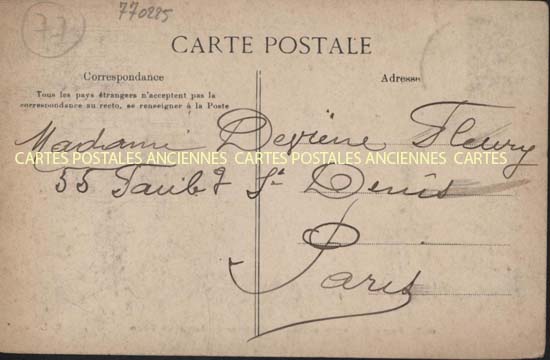 77
770225
CARTE POSTALE
Correspondance
Tous les pays étrangers n'acceptent pas la
correspondance au recto, se renseigner à la Poste
Adresse
Madame Fleury
CARTES POSTALES ANCIENNES CARTES POSTALES ANCIENNES CARTES
55 Faubg St Denis
Paris